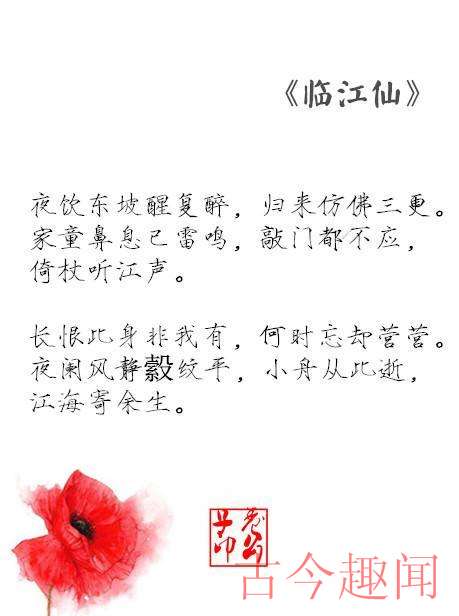 《临江仙》
夜饮东坡醒复醉，归来仿佛三更。
家童鼻息已雷鸣，敲门都不应，
倚杖听江声。
长恨此身非我有，何时忘却营营。
夜阑风静縠纹平，小舟从此逝，
江海寄余生。
古今趣闻